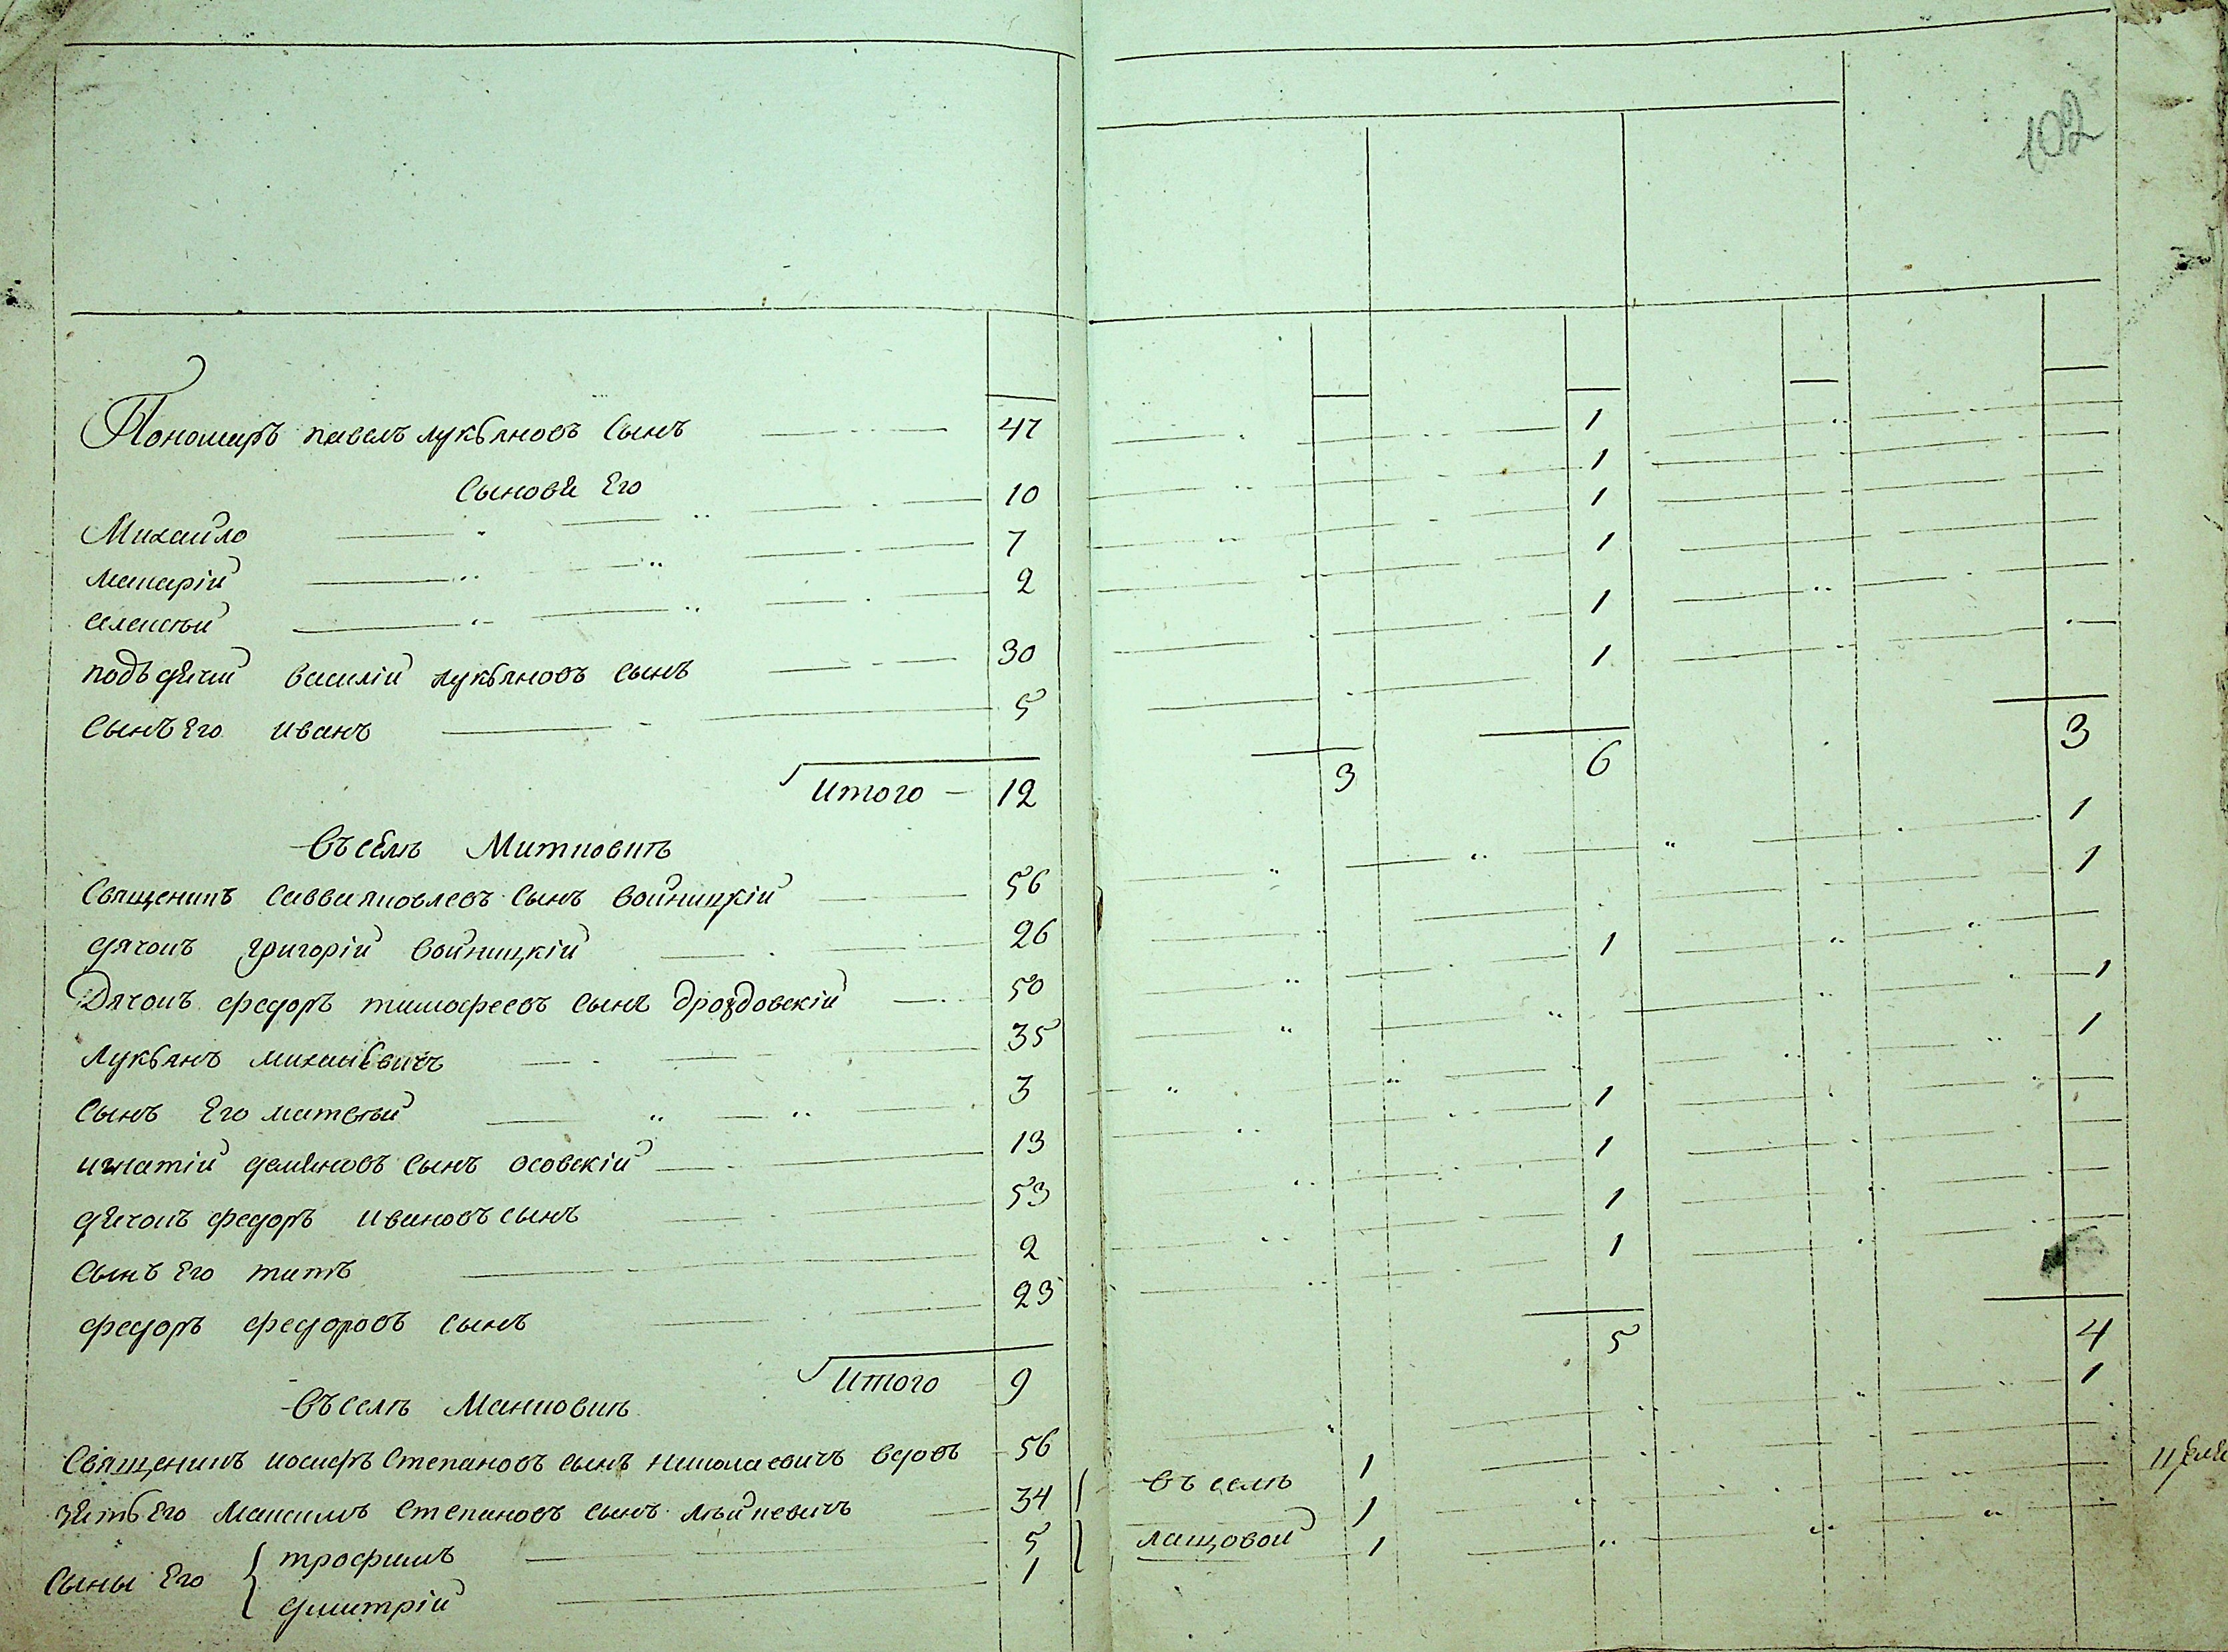 102
Пономаръ павелъ лукьяновъ сынъ 47 1
сыновя Его
Михайло 10 1
макарій 7 1
елисѣй 2 1
подъдячій василій лукьяновъ сынъ 30 1
сынъ Его иванъ 5 1
Итого 12 3 6 3
Въ селѣ Митковкѣ
священикъ савва яковлевъ сынъ войницкій 56 1
дячокъ григорій войницкій 26 1
Дячокъ федоръ тимофеевъ сынъ дроздовскій 50 1
лукьянъ 35 1
сынъ Его матвѣй 3 1
игнатій демяновъ сынъ осовскій 13 1
дячокъ федоръ ивановъ сынъ 53 1
сынъ Его титъ 2 1
федоръ федоровъ сынъ 23 1
Итого 9 5 4
Въ селѣ Манковкѣ
священикъ иосифъ степановъ сынъ николаевичъ вдовъ 56 1
зять Его максимъ степановъ сынъ 34 въ селѣ 1
сыны Его { трофимъ 5 лащовой 1
дмитрій 1 1